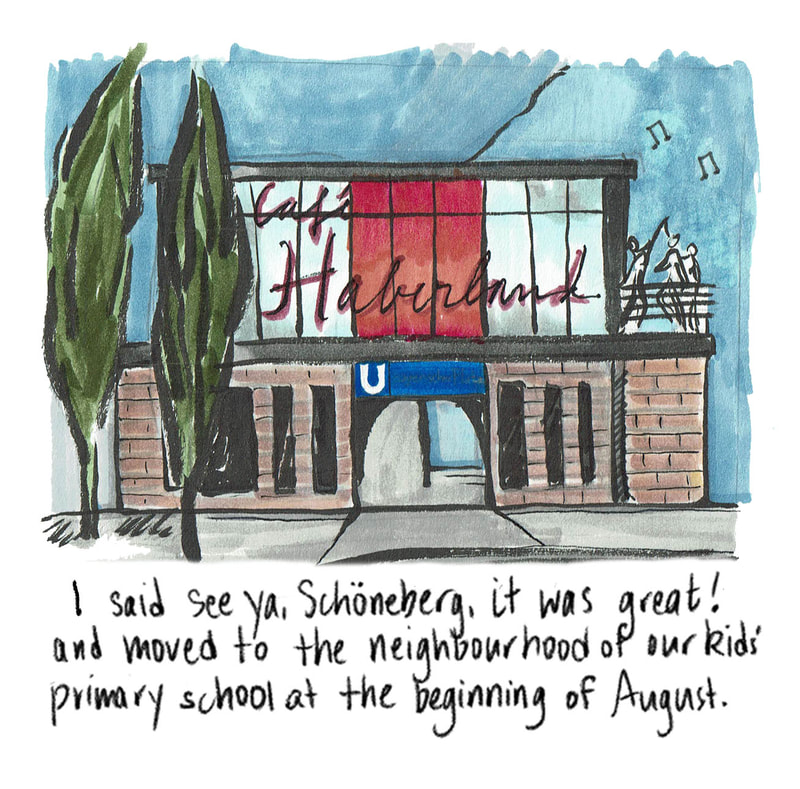 Café
Haberland
U
I said see ya, Schöneberg, it was great!
and moved to the neighbourhood of our kids'
primary school at the beginning of August.